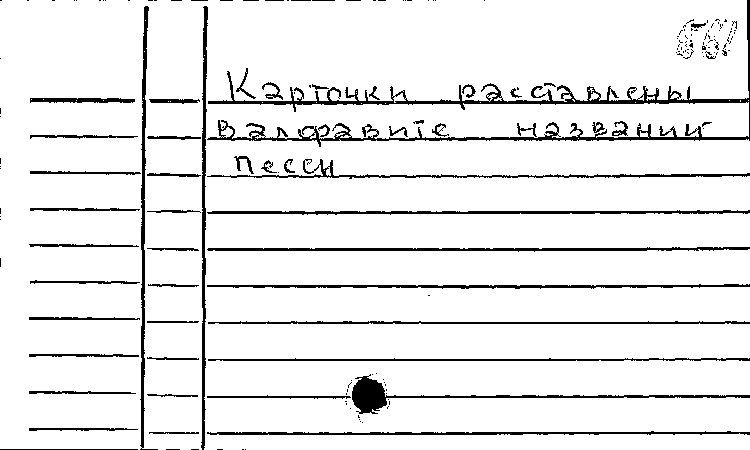 561
Карточки расставлены
в алфавите названий
песен